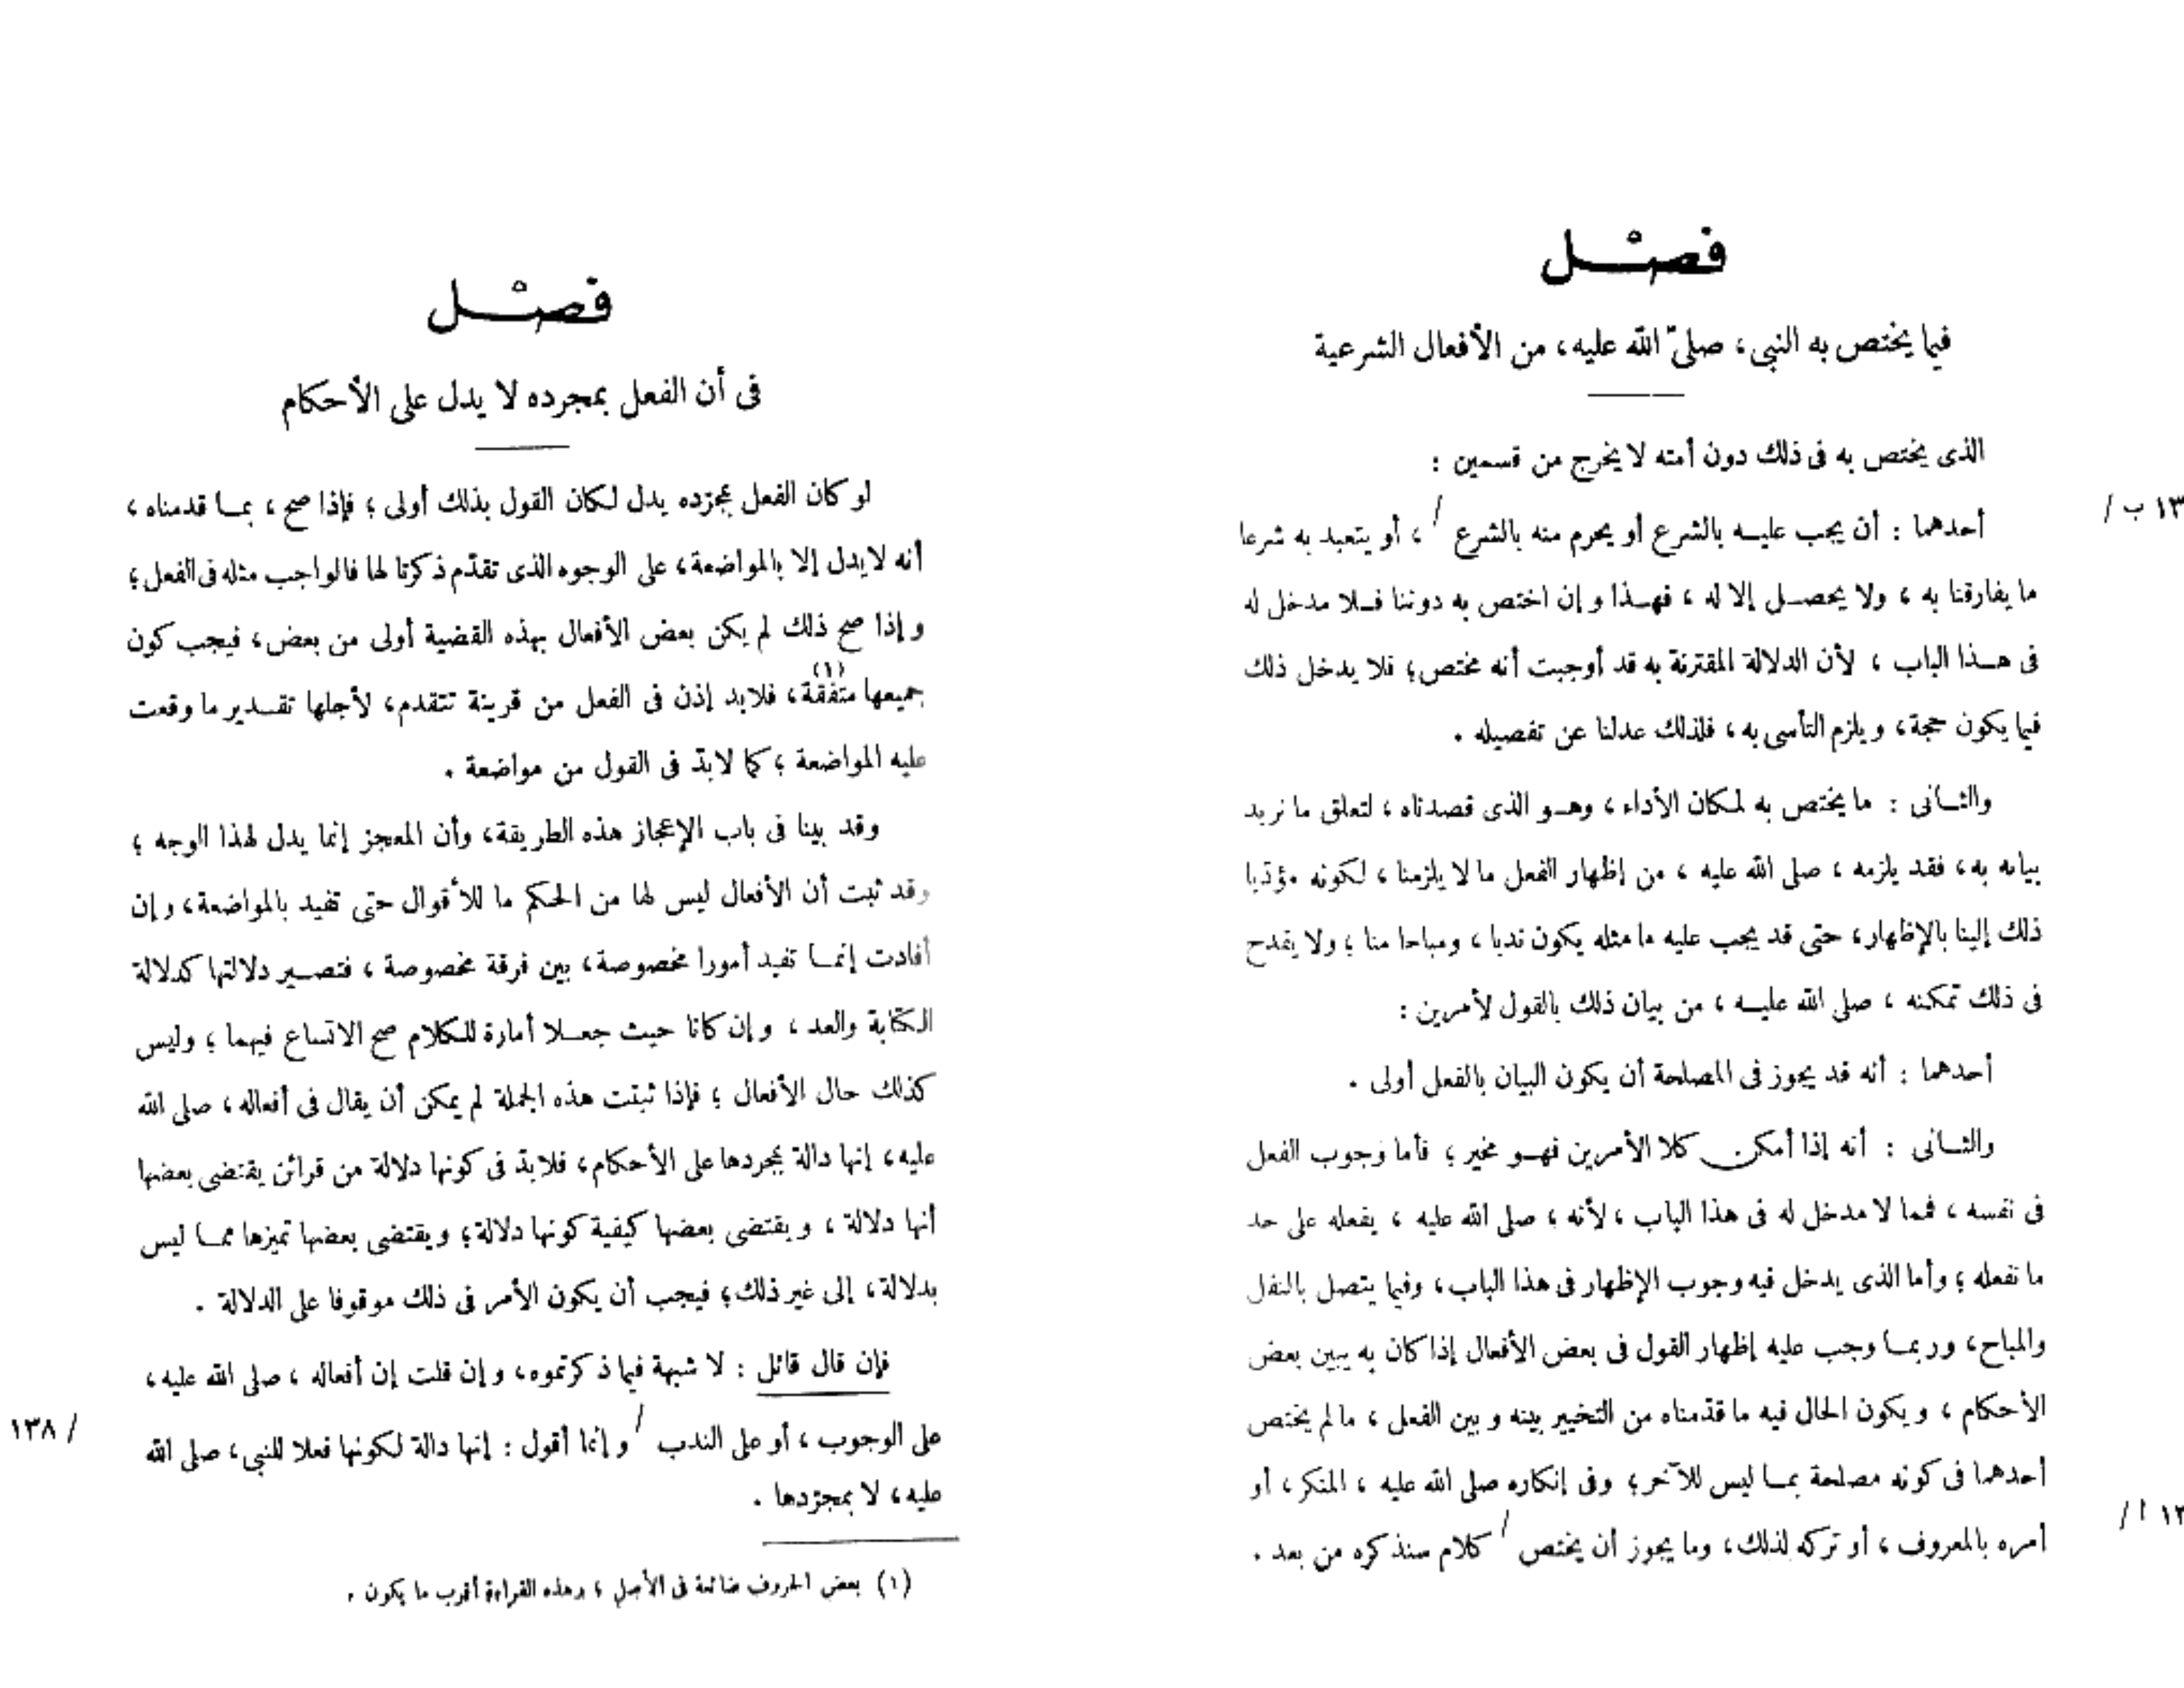 فصل
فيما يختص به النبي، صلى الله عليه، من الأفعال الشرعية
الذى يختص به فى ذلك دون أمته لا يخرج من قسمين :
١٣ ب /
أحدهما : أن يجب عليه بالشرع أو يحرم منه بالشرع / ، أو يتعبد به شرعا
ما يفارقنا به ، ولا يحصل إلا له ، فهذا وإن اختص به دوننا فلا مدخل له
فى هذا الباب ، لأن الدلالة المقترنة به قد أوجبت أنه مختص ؛ فلا يدخل ذلك
فيما يكون حجة ، ويلزم التأسى به ، فلذلك عدلنا عن تفصيله .
والثانى : ما يختص به لمكان الأداء ، وهو الذى قصدناه ، لتعلق ما نريد
بيانه به ، فقد يلزمه ، صلى الله عليه ، من إظهار الفعل ما لا يلزمنا ، لكونه مؤديا
ذلك إلينا بالإظهار ، حتى قد يجب عليه ما مثله يكون ندبا ، ومباحا منا ؛ ولا يقدح
فى ذلك تمكنه ، صلى الله عليه ، من بيان ذلك بالقول لأمرين :
أحدهما : أنه قد يجوز فى المصلحة أن يكون البيان بالفعل أولى .
والثانى : أنه إذا أمكن كلا الأمرين فهو مخير ؛ فأما وجوب الفعل
فى نفسه ، فما لا مدخل له فى هذا الباب ، لأنه ، صلى الله عليه ، يفعله على حد
ما نفعله ؛ وأما الذى يدخل فيه وجوب الإظهار فى هذا الباب ، وفيما يتصل بالنفل
والمباح ، وربما وجب عليه إظهار القول فى بعض الأفعال إذا كان به يبين بعض
الأحكام ، ويكون الحال فيه ما قدّمناه من التخيير بينه وبين الفعل ، ما لم يختص
أحدهما فى كونه مصلحة بما ليس للآخر ؛ وفى إنكاره صلى الله عليه ، المنكر ، أو
١٣ ا /
أمره بالمعروف ، أو تركه لذلك ، وما يجوز أن يختص / كلام سنذكره من بعد .
فصل
فى أن الفعل بمجرده لا يدل على الأحكام
لو كان الفعل بمجرّده يدل لكان القول بذلك أولى ؛ فإذا صح ، بما قدمناه ،
أنه لا يدل إلا بالمواضعة ، على الوجوه الذى تقدّم ذكرنا لها فالواجب مثله فى الفعل ؛
وإذا صح ذلك لم يكن بعض الأفعال بهذه القضية أولى من بعض ، فيجب كون
جميعها متفقة (١) ، فلابد إذن فى الفعل من قرينة تتقدم ، لأجلها تقدير ما وقعت
عليه المواضعة ؛ كما لابدّ فى القول من مواضعة .
وقد بينا فى باب الإعجاز هذه الطريقة ، وأن المعجز إنما يدل لهذا الوجه ؛
وقد ثبت أن الأفعال ليس لها من الحكم ما للأقوال حتى تفيد بالمواضعة ، وإن
أفادت إنما تفيد أمورا مخصوصة ، بين فرقة مخصوصة ، فتصير دلالتها كدلالة
الكتابة والعد ، وإن كانا حيث جعلا أمارة للكلام صح الاتساع فيهما ؛ وليس
كذلك حال الأفعال ؛ فإذا ثبتت هذه الجملة لم يمكن أن يقال فى أفعاله ، صلى الله
عليه ، إنها دالة بمجردها على الأحكام ، فلابدّ فى كونها دلالة من قرائن يقتضى بعضها
أنها دلالة ، ويقتضى بعضها كيفية كونها دلالة ؛ ويقتضى بعضها تميزها مما ليس
بدلالة ، إلى غير ذلك ؛ فيجب أن يكون الأمر فى ذلك موقوفا على الدلالة .
فإن قال قائل : لا شبهة فيما ذكرتموه ، وإن قلت إن أفعاله ، صلى الله عليه ،
على الوجوب ، أو على الندب / وإنما أقول : إنها دالة لكونها فعلا للنبى ، صلى الله
/ ١٣٨
عليه ، لا بمجرّدها .
(١) بعض الحروف ضائعة فى الأصل ، وهذه القراءة أقرب ما يكون .